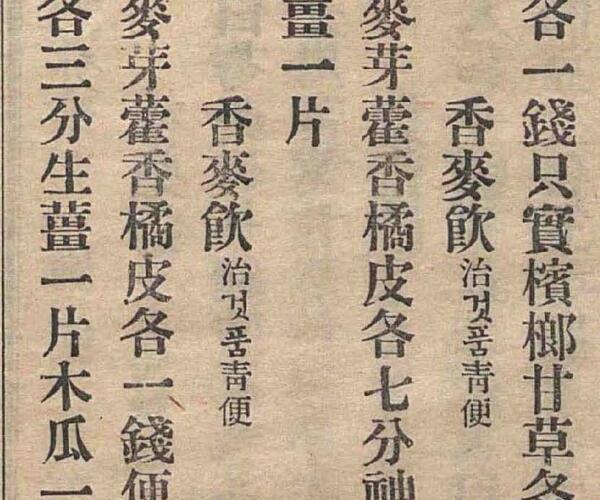 各一錢只實檳榔甘草各
香麥飮 治것품靑便
麥芽藿香橘皮各七分神
薑一片
香麥飮 治것품靑便
麥芽藿香橘皮各一錢便
各三分生薑一片木瓜一